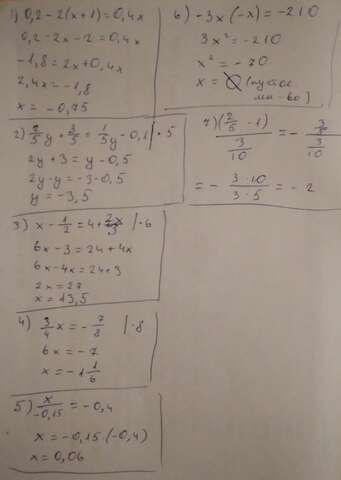 1) 0,2 - 2(x+1) = 0,4x
0,2 - 2x - 2 = 0,4x
-1,8 = 2x + 0,4x
2,4x = -1,8
x = -0,75
2) 2/5 y + 3/5 = 1/5 y - 0,1 | · 5
2y + 3 = y - 0,5
2y - y = -3 - 0,5
y = -3,5
3) x - 1/2 = 4 + 2x/3 | · 6
6x - 3 = 24 + 4x
6x - 4x = 24 + 3
2x = 27
x = 13,5
4) 3/4 x = - 7/8 | · 8
6x = -7
x = -1 1/6
5) x/-0,15 = -0,4
x = -0,15 · (-0,4)
x = 0,06
6) -3x(-x) = -210
3x² = -210
x² = -70
x = ∅ (пустое
мн-во)
7) (2/5 - 1) / 3/10 = - 3/5 / 3/10
= - 3·10 / 3·5 = -2